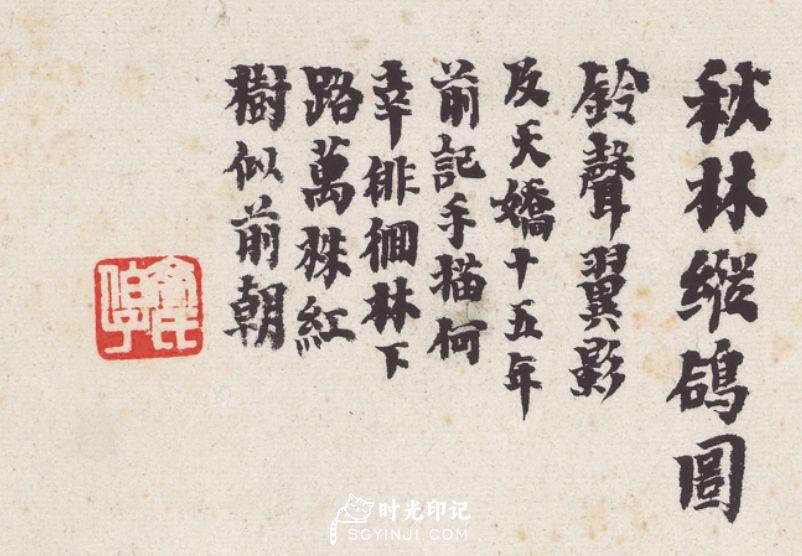 秋林縱鴿圖
鈴聲翼影
及天嬌十五年
前記手描何
幸徘徊林下
路萬株紅
樹似前朝
时光印记
SGYINJI.COM